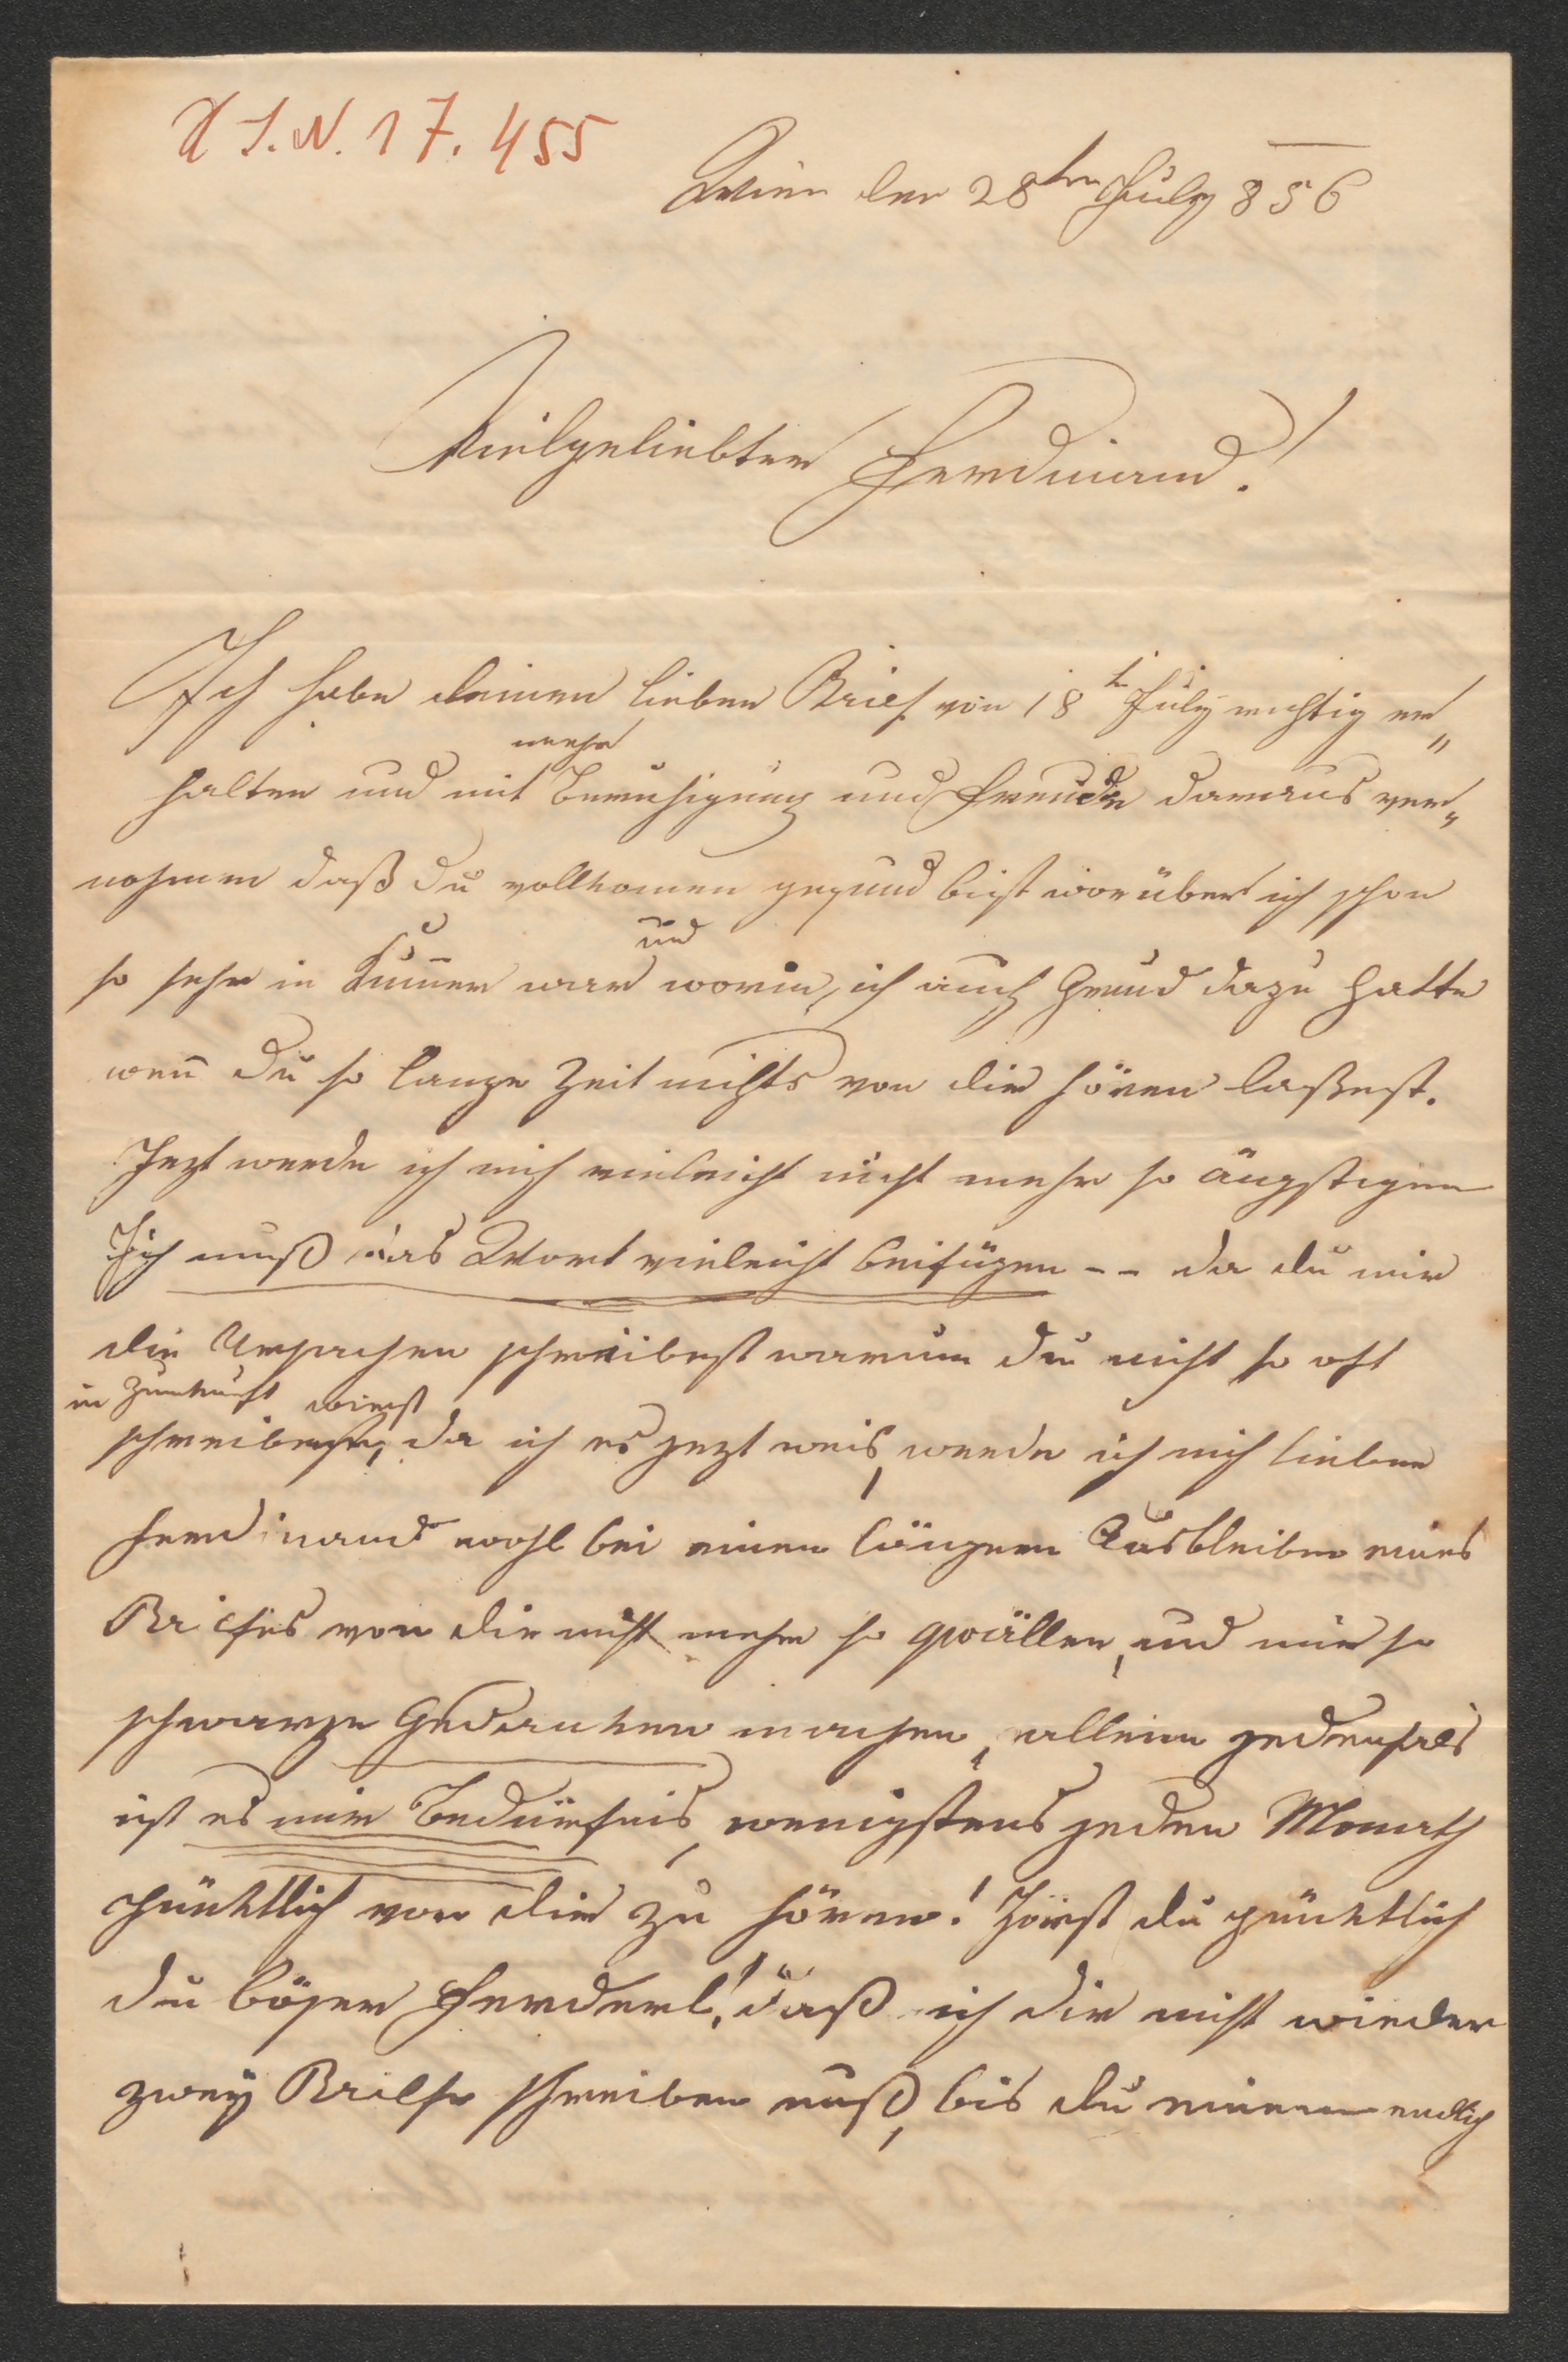 H I.N. 17.455
Wien den 28ten July 856
Vielgeliebter Ferdinand!
Ich habe deinen lieben Brief von 18t July richtig er„
mehr
halten und mit Beruhigung und Freude daraus ver„
nohmen daß du vollkomen gesund bist worüber ich schon
und
so sehr in Kum̄er war worin, ich auch Grund dazu hatte
wen̄ du so lange Zeit nichts von dir hören laßest.
Jezt werde ich mich vieleicht nicht mehr so ängstigen
Ich muß das Wort vieleicht beifügen -- da du mir
die Ursachen schreibest warum du nicht so oft
in Zunkunft wirst
schreiben, da ich es jezt weis, werde ich mich lieber
Ferdinand wohl bei einen längern Ausbleiben eines
Briefes von dir nicht mehr so qwällen, und mir so
schwarze Gedanken machen, allein jedenfals
ist es mir Bedürfnis, wenigstens jeden Monath
pünktlich von dir zu hören! Hörst du pünktlich
du böser Ferderl! daß ich dir nicht wieder
zwey Briefe schreiben muß, bis du einen endlich